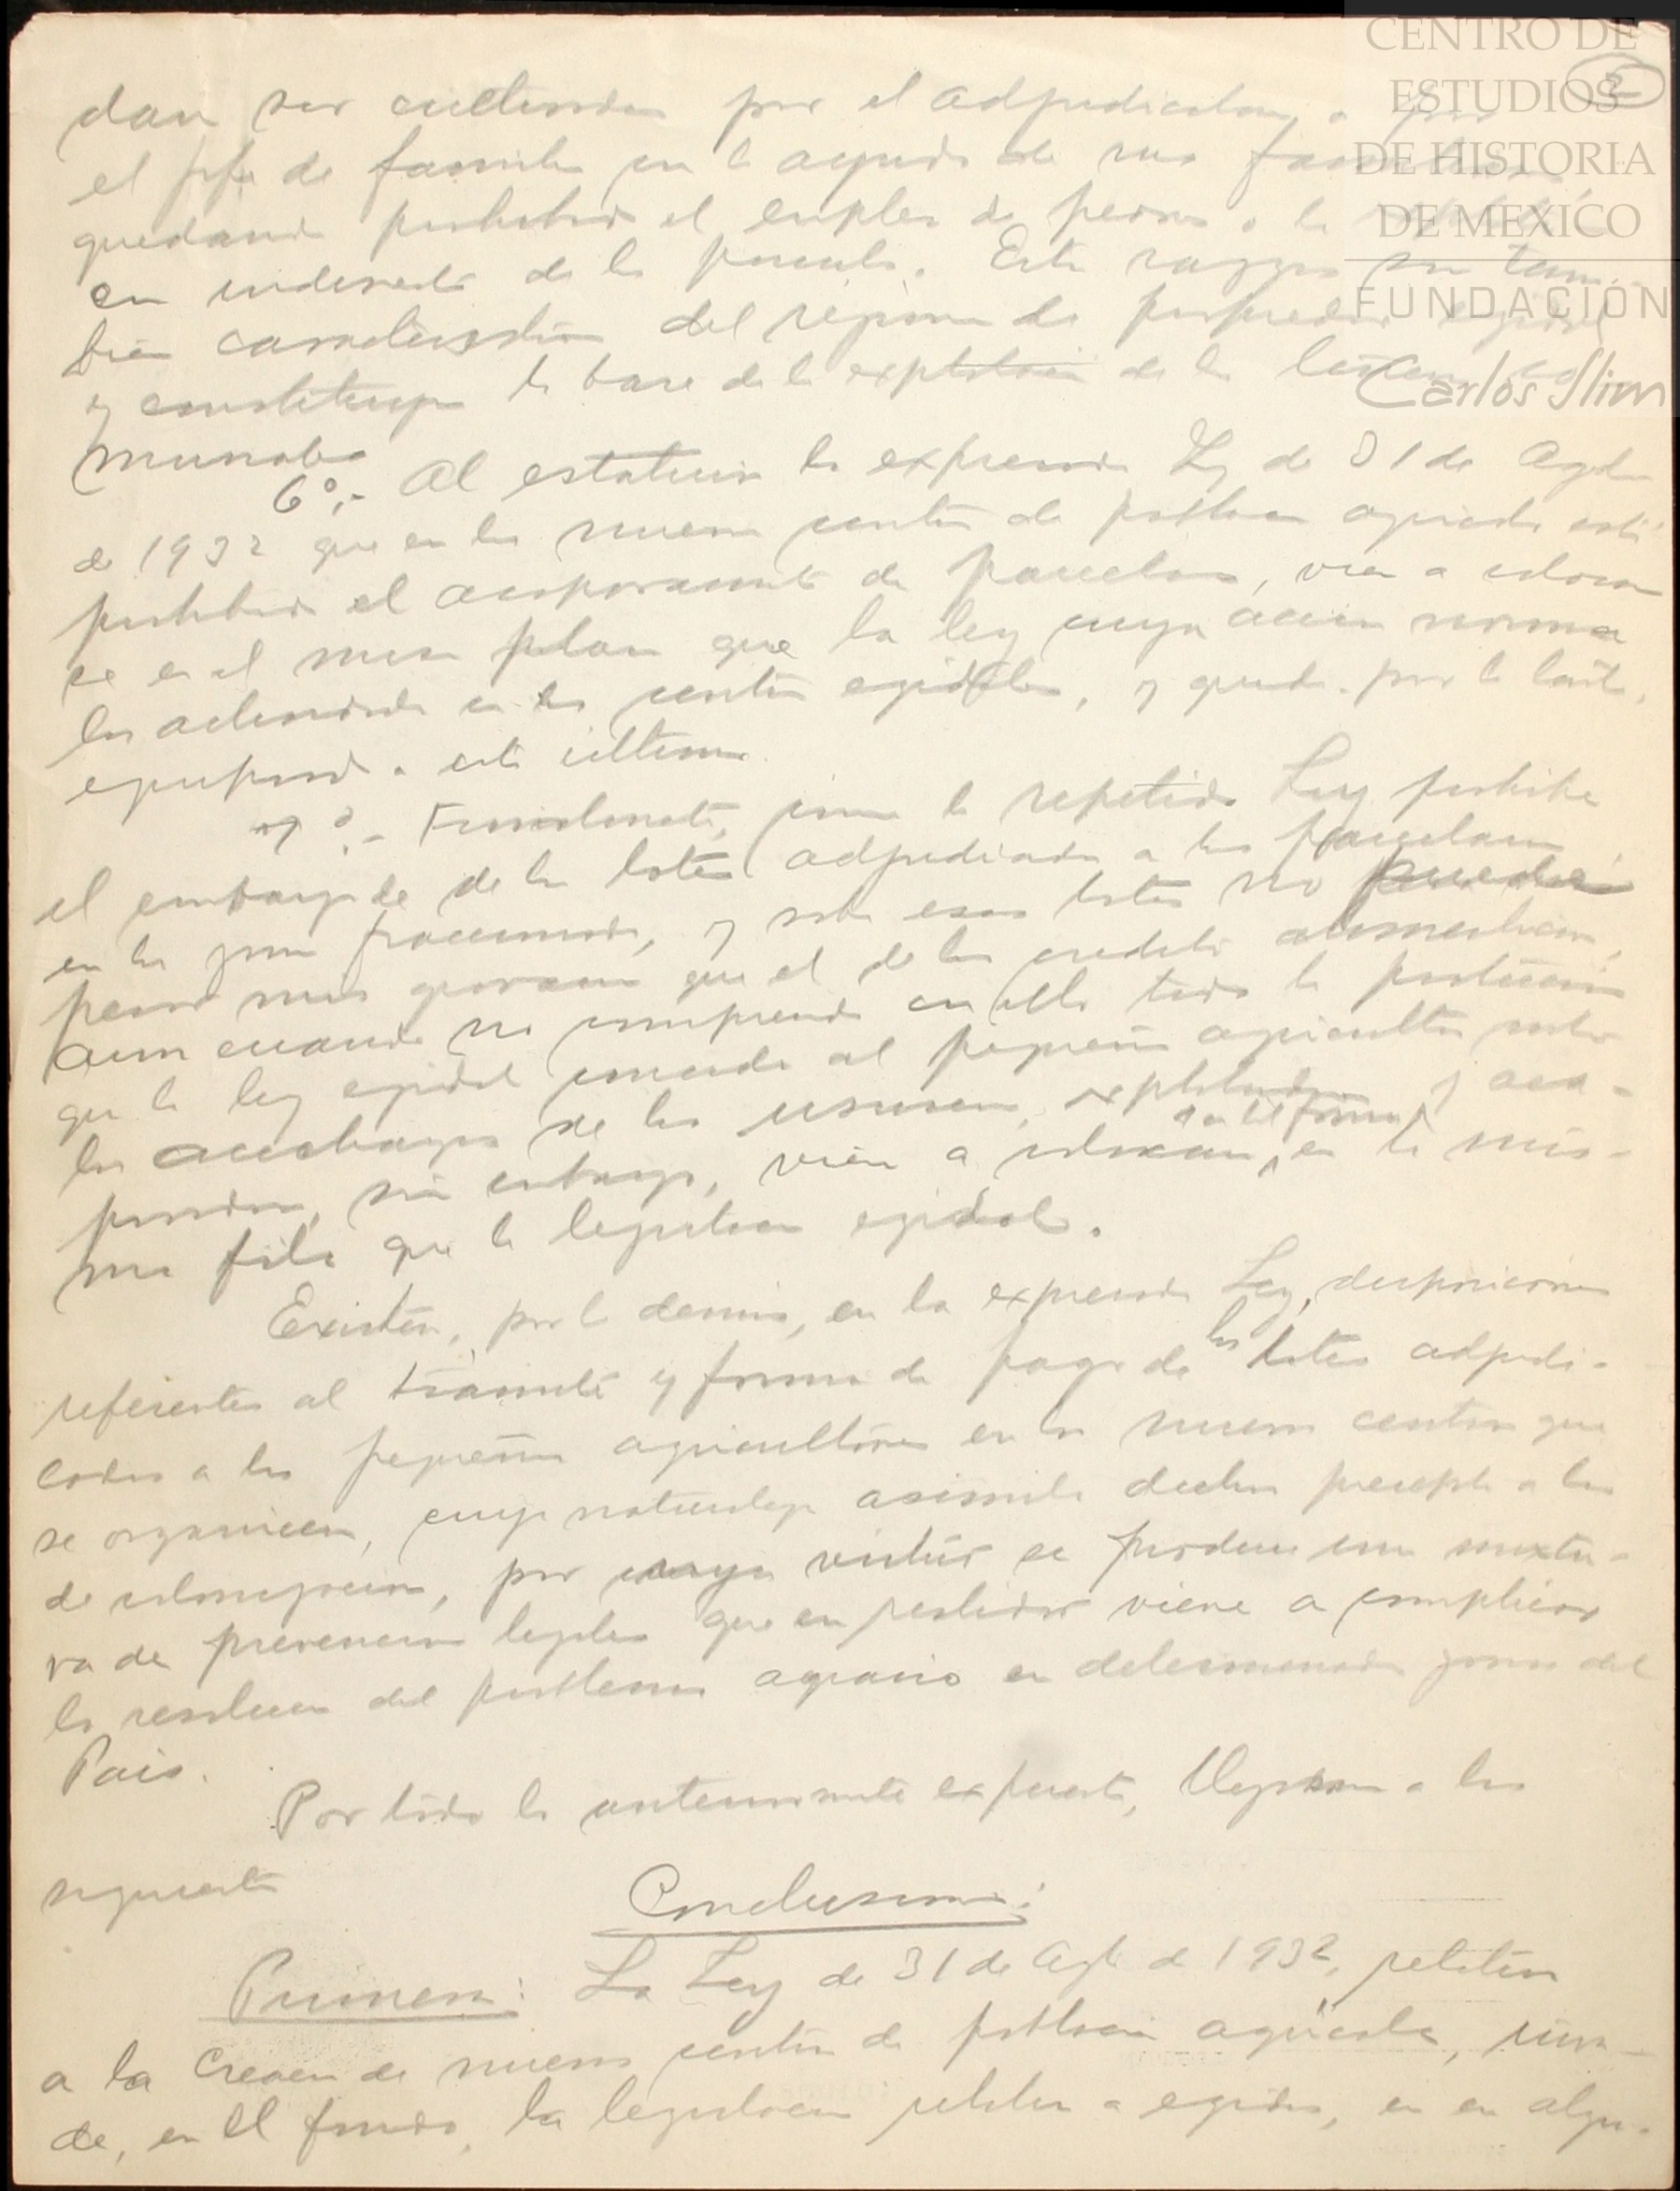 CENTRO DE
ESTUDIOS
DE HISTORIA
DE MEXICO
FUNDACIÓN
Carlos Slim
2
dan ser cultivadas por el adjudicatario, o por
el jefe de familia con la ayuda de sus familiares,
quedando prohibido el empleo de peones o la
en indeviso de la parcela. Estos rasgos son tam-
bien caracteristicos del régimen de propiedad ejidal
y constituyen la base de la explotación de las tierras co-
munales
6°.- Al estatuir la expresada Ley de 31 de Agosto
de 1932 que en los nuevos centros de población agricola está
prohibido el acaparamiento de parcelas, viene a colocar
se en el mismo plano que la ley cuya acción norma
las actividades en los centros ejidales, y queda, por lo tanto,
equiparada a esta última.
7°.- Finalmente, como la repetida Ley prohibe
el embargo de los lotes adjudicados a los parcelarios
en las zonas fraccionadas, y sobre esos lotes no pueden
pesar mas gravamen que el de los creditos alimenticios,
aun cuando no comprende en ella toda la protección
que la ley ejidal concede al pequeño agricultor contra
las acechanzas de los usureros, explotadores y aca-
paradores, sin embargo, viene a colocarse, en tal forma, en la mis-
ma fila que la legislación ejidal.
Existen, por lo demás, en la expresada Ley, disposiciones
referentes al trámite y forma de pago de los lotes adjudi-
cados a los pequeños agricultores en los nuevos centros que
se organicen, cuya naturaleza asimila dichos preceptos a los
de colonización, por cuya virtud se produce una mixtu-
ra de prevenciones legales que en realidad viene a complicar
la resolución del problema agrario en determinadas zonas del
País.
Por todo lo anteriormente expuesto, llegamos a las
siguientes
Conclusiones:
Primera: La Ley de 31 de Agto de 1932, relativa
a la creación de nuevos centros de población agrícola, inva-
de, en el fondo, la legislación relativa a ejidos, en algu-